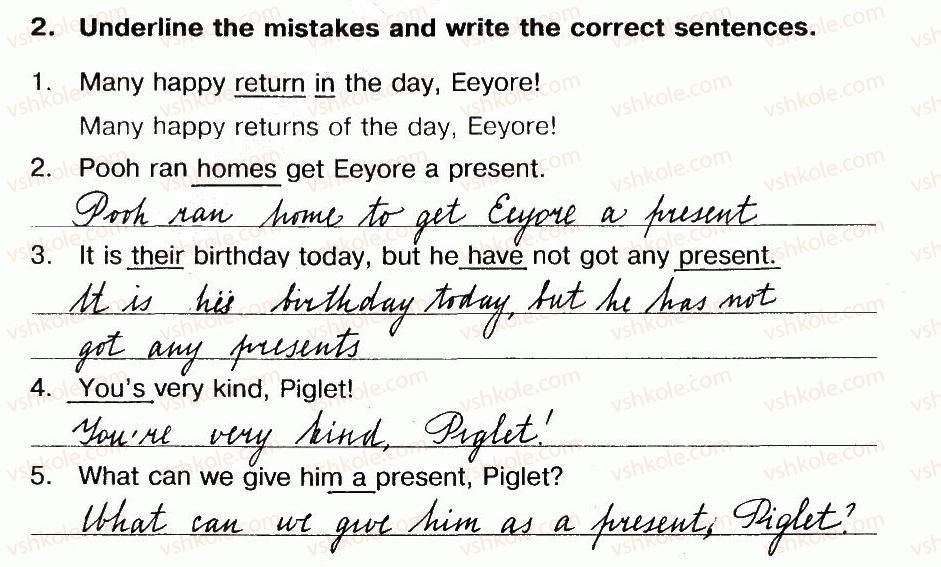 2. Underline the mistakes and write the correct sentences.
1. Many happy return in the day, Eeyore!
Many happy returns of the day, Eeyore!
2. Pooh ran homes get Eeyore a present.
Pooh ran home to get Eeyore a present
3. It is their birthday today, but he have not got any present.
It is his birthday today, but he has not
got any presents
4. You's very kind, Piglet!
You're very kind, Piglet!
5. What can we give him a present, Piglet?
What can we give him as a present, Piglet?
vshkole.com